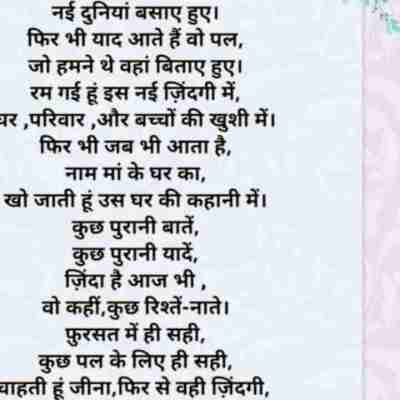 नई दुनियां बसाए हुए।
फिर भी याद आते हैं वो पल,
जो हमने थे वहां बिताए हुए।
रम गई हूं इस नई ज़िंदगी में,
घर ,परिवार ,और बच्चों की खुशी में।
फिर भी जब भी आता है,
नाम मां के घर का,
खो जाती हूं उस घर की कहानी में।
कुछ पुरानी बातें,
कुछ पुरानी यादें,
ज़िंदा है आज भी ,
वो कहीं,कुछ रिश्तें-नाते।
फ़ुरसत में ही सही,
कुछ पल के लिए ही सही,
चाहती हूं जीना,फिर से वही ज़िंदगी,